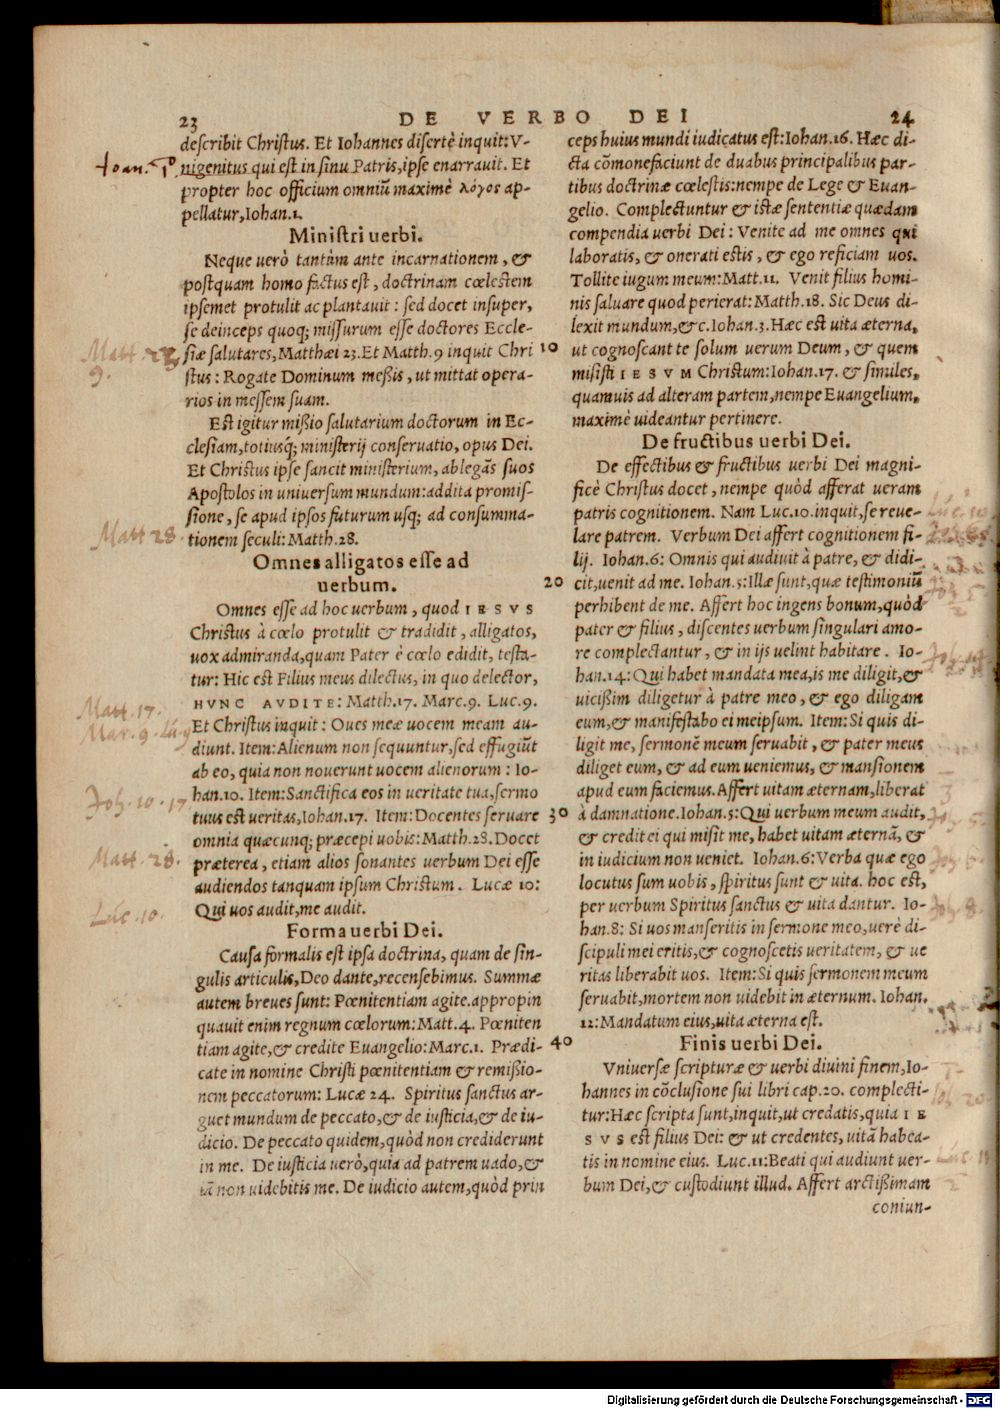 23 DE VERBO DEI 24
describit Christus. Et Iohannes disertè inquit: V-
nigenitus qui est in sinu Patris, ipse enarrauit. Et
propter hoc officium omniũ maximè λόγος ap-
pellatur, Iohan.1.
Ministri uerbi.
Neque uerò tantùm ante incarnationem, &
postquam homo factus est, doctrinam cœlestem
ipsemet protulit ac plantauit: sed docet insuper,
se deinceps quoq; missurum esse doctores Eccle-
siæ salutares, Matthæi 23. Et Matth.9 inquit Chri
stus: Rogate Dominum meßis, ut mittat opera-
rios in messem suam.
Est igitur mißio salutarium doctorum in Ec-
clesiam, totiusq́; ministerij conseruatio, opus Dei.
Et Christus ipse sancit ministerium, ablegãs suos
Apostolos in uniuersum mundum: addita promis-
sione, se apud ipsos futurum usq; ad consumma-
tionem seculi: Matth.28.
Omnes alligatos esse ad
uerbum.
Omnes esse ad hoc uerbum, quod IESVS
Christus à cœlo protulit & tradidit, alligatos,
uox admiranda, quam Pater è cœlo edidit, testa-
tur: Hic est Filius meus dilectus, in quo delector,
HVNC AVDITE: Matth.17. Marc.9. Luc.9.
Et Christus inquit: Oues meæ uocem meam au-
diunt. Item: Alienum non sequuntur, sed effugiũt
ab eo, quia non nouerunt uocem alienorum: Io-
han.10. Item: Sanctifica eos in ueritate tua, sermo
tuus est ueritas, Iohan.17. Item: Docentes seruare
omnia quæcunq; præcepi uobis: Matth.28. Docet
præterea, etiam alios sonantes uerbum Dei esse
audiendos tanquam ipsum Christum. Lucæ 10:
Qui uos audit, me audit.
Forma uerbi Dei.
Causa formalis est ipsa doctrina, quam de sin-
gulis articulis, Deo dante, recensebimus. Summæ
autem breues sunt: Pœnitentiam agite. appropin
quauit enim regnum cœlorum: Matt.4. Pœniten
tiam agite, & credite Euangelio: Marc.1. Prædi-
cate in nomine Christi pœnitentiam & remißio-
nem peccatorum: Lucæ 24. Spiritus sanctus ar-
guet mundum de peccato, & de iusticia, & de iu-
dicio. De peccato quidem, quòd non crediderunt
in me. De iusticia uerò, quia ad patrem uado, &
iã non uidebitis me. De iudicio autem, quòd prin
Ioan.
Matt 23
9.
Matt 28
Matt. 17.
Mar. 9. Lu 9
Joh. 10. 17
Matt. 28.
Luc. 10.
10
20
30
40
ceps huius mundi iudicatus est: Iohan.16. Hæc di-
cta cõmonefaciunt de duabus principalibus par-
tibus doctrinæ cœlestis: nempe de Lege & Euan-
gelio. Complectuntur & istæ sententiæ quædam
compendia uerbi Dei: Venite ad me omnes qui
laboratis, & onerati estis, & ego reficiam uos.
Tollite iugum meum: Matt.11. Venit filius homi-
nis saluare quod perierat: Matth.18. Sic Deus di-
lexit mundum, &c. Iohan.3. Hæc est uita æterna,
ut cognoscant te solum uerum Deum, & quem
misisti IESVM Christum: Iohan.17. & similes,
quamuis ad alteram partem, nempe Euangelium,
maximè uideantur pertinere.
De fructibus uerbi Dei.
De effectibus & fructibus uerbi Dei magni-
ficè Christus docet, nempe quòd afferat ueram
patris cognitionem. Nam Luc.10. inquit, se reue-
lare patrem. Verbum Dei affert cognitionem fi-
lij. Iohan.6: Omnis qui audiuit à patre, & didi-
cit, uenit ad me. Iohan.5: Illæ sunt, quæ testimoniũ
perhibent de me. Affert hoc ingens bonum, quòd
pater & filius, discentes uerbum singulari amo-
re complectantur, & in ijs uelint habitare. Io-
han.14: Qui habet mandata mea, is me diligit, &
uicißim diligetur à patre meo, & ego diligam
eum, & manifestabo ei meipsum. Item: Si quis di-
ligit me, sermonẽ meum seruabit, & pater meus
diliget eum, & ad eum ueniemus, & mansionem
apud eum faciemus. Affert uitam æternam, liberat
à damnatione. Iohan.5: Qui uerbum meum audit,
& credit ei qui misit me, habet uitam æternã, &
in iudicium non ueniet. Iohan.6: Verba quæ ego
locutus sum uobis, spiritus sunt & uita. hoc est,
per uerbum Spiritus sanctus & uita dantur. Io-
han.8: Si uos manseritis in sermone meo, uerè di-
scipuli mei eritis, & cognoscetis ueritatem, & ue
ritas liberabit uos. Item: Si quis sermonem meum
seruabit, mortem non uidebit in æternum. Iohan.
12: Mandatum eius, uita æterna est.
Finis uerbi Dei.
Vniuersæ scripturæ & uerbi diuini finem, Io-
hannes in cõclusione sui libri cap.20. complecti-
tur: Hæc scripta sunt, inquit, ut credatis, quia IE
SVS est filius Dei: & ut credentes, uitã habea-
tis in nomine eius. Luc.11: Beati qui audiunt uer-
bum Dei, & custodiunt illud. Affert arctißimam
coniun-
Digitalisierung gefördert durch die Deutsche Forschungsgemeinschaft - DFG